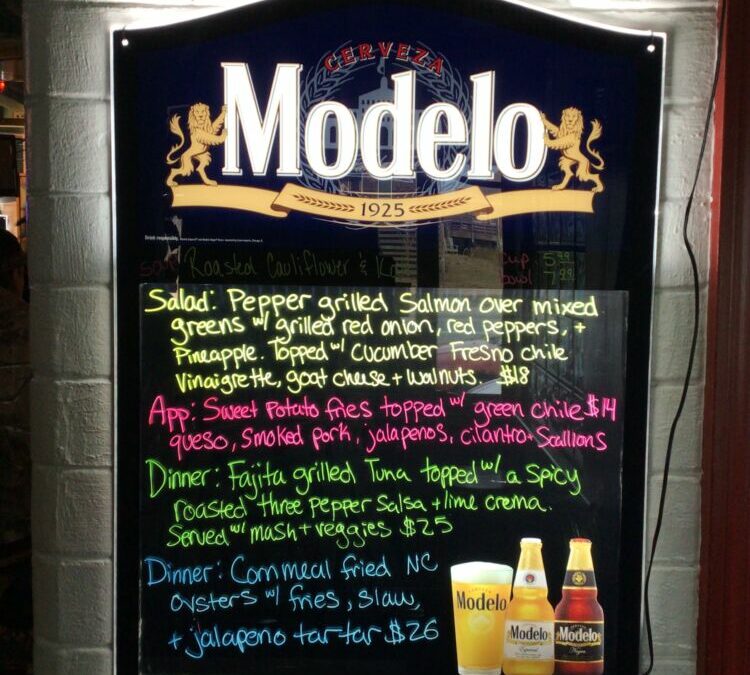 CERVEZA
Modelo
1925
Drink responsibly.
Roasted Cauliflower &
CUP 5.99
bowl 7.99
Salad: Pepper grilled Salmon over mixed
greens w/ grilled red onion, red peppers, +
Pineapple. Topped w/ Cucumber Fresno chile
Vinaigrette, goat cheese + walnuts. $18
App: Sweet Potato fries topped w/ green chile $14
queso, smoked pork, jalapenos, cilantro + Scallions
Dinner: Fajita grilled Tuna topped w/ a spicy
roasted three pepper salsa + lime crema.
Served w/ mash + veggies $25
Dinner: Cornmeal fried NC
oysters w/ fries, slaw,
+ jalapeno tar-tar $26
Modelo
Modelo
Especial
Modelo
Negra